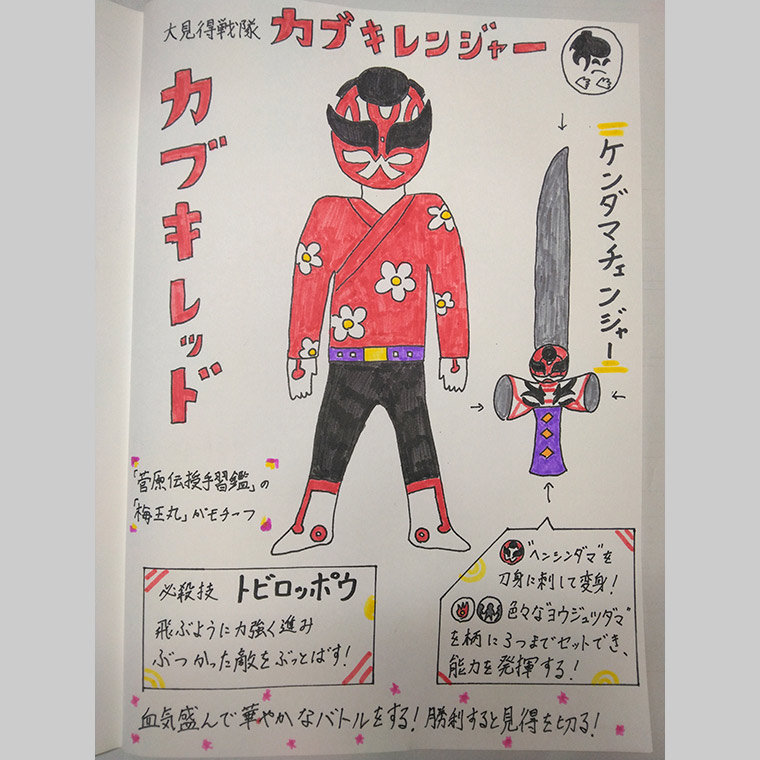 大見得戦隊 カブキレンジャー
カブキレッド
ケンダマチェンジャー
「菅原伝授手習鑑」の
「梅王丸」がモチーフ
必殺技 トビロッポウ
飛ぶように力強く進み
ぶつかった敵をぶっとばす!
"ヘンシンダマ"を
刀身に刺して変身!
色々な"ヨウジュツダマ"
を柄に3つまでセットでき、
能力を発揮する!
血気盛んで華やかなバトルをする!勝利すると見得を切る!